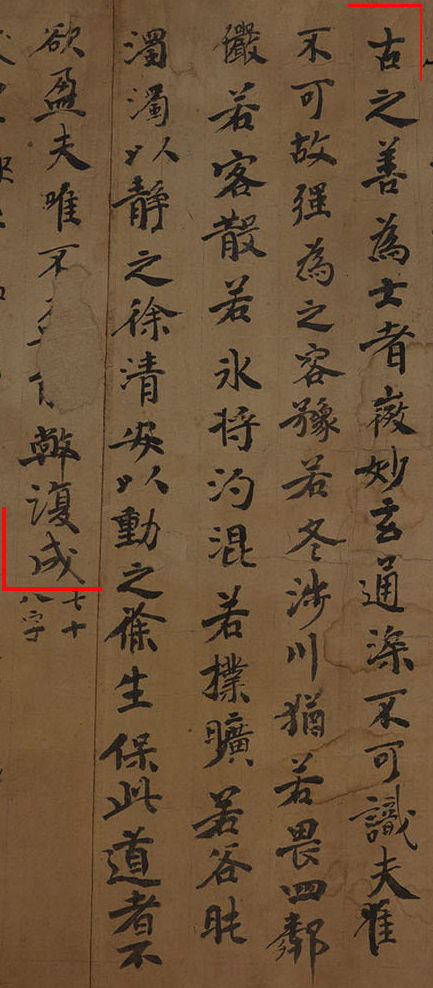 古之善為士者微妙玄通深不可識夫惟
不可故强為之容豫若冬涉川猶若畏四鄰
儼若客散若氷將汋混若樸曠若谷肫
濁濁以靜之徐清安以動之徐生保此道者不
欲盈夫唯不弊復成
七十
八字